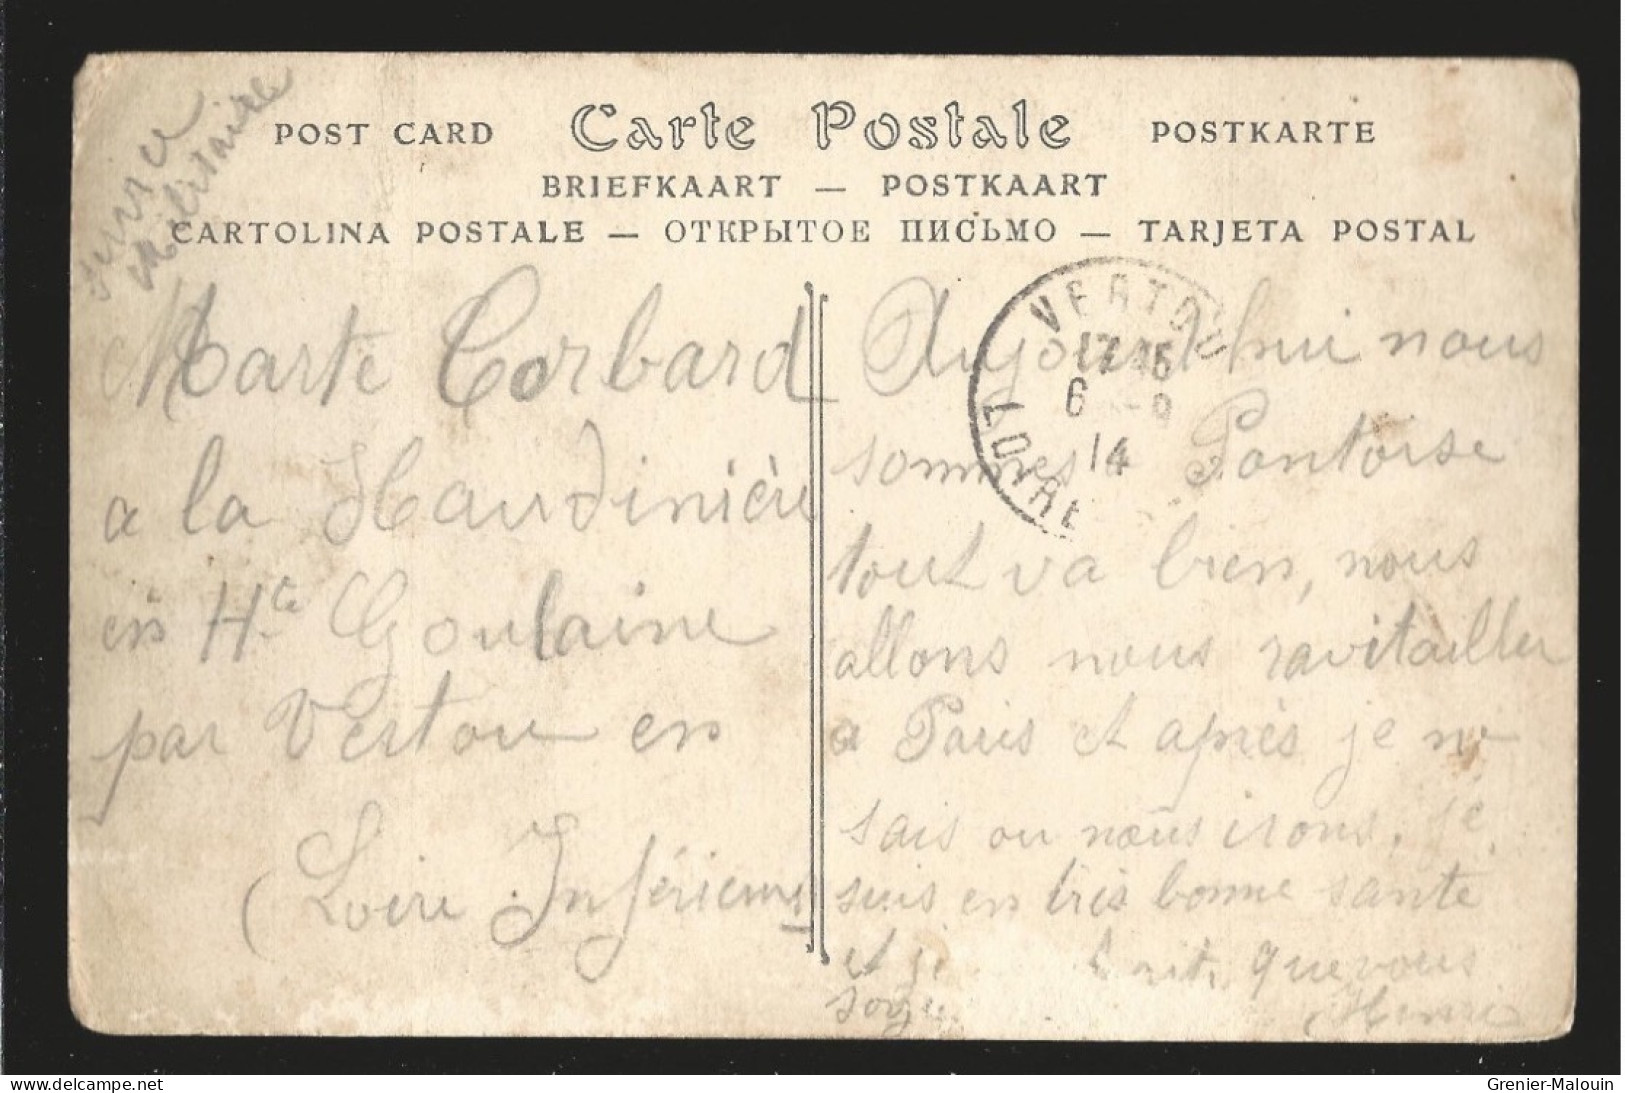 Service
Militaire
POST CARD Carte Postale POSTKARTE
BRIEFKAART — POSTKAART
CARTOLINA POSTALE — ОТКРЫТОЕ ПИСЬМО — TARJETA POSTAL
Marte Corbard
a la Haudinière
en Hte Goulaine
par Vertou en
(Loire Inférieure
VERTOU
17 45
6 -8
14
LOIRE
Aujourd'hui nous
sommes Pontoise
tout va bien, nous
allons nous ravitailler
a Paris et après je ne
sais ou nous irons. je
suis en très bonne santé
et je que vous
soyez Henri
delcampe.net
Grenier-Malouin